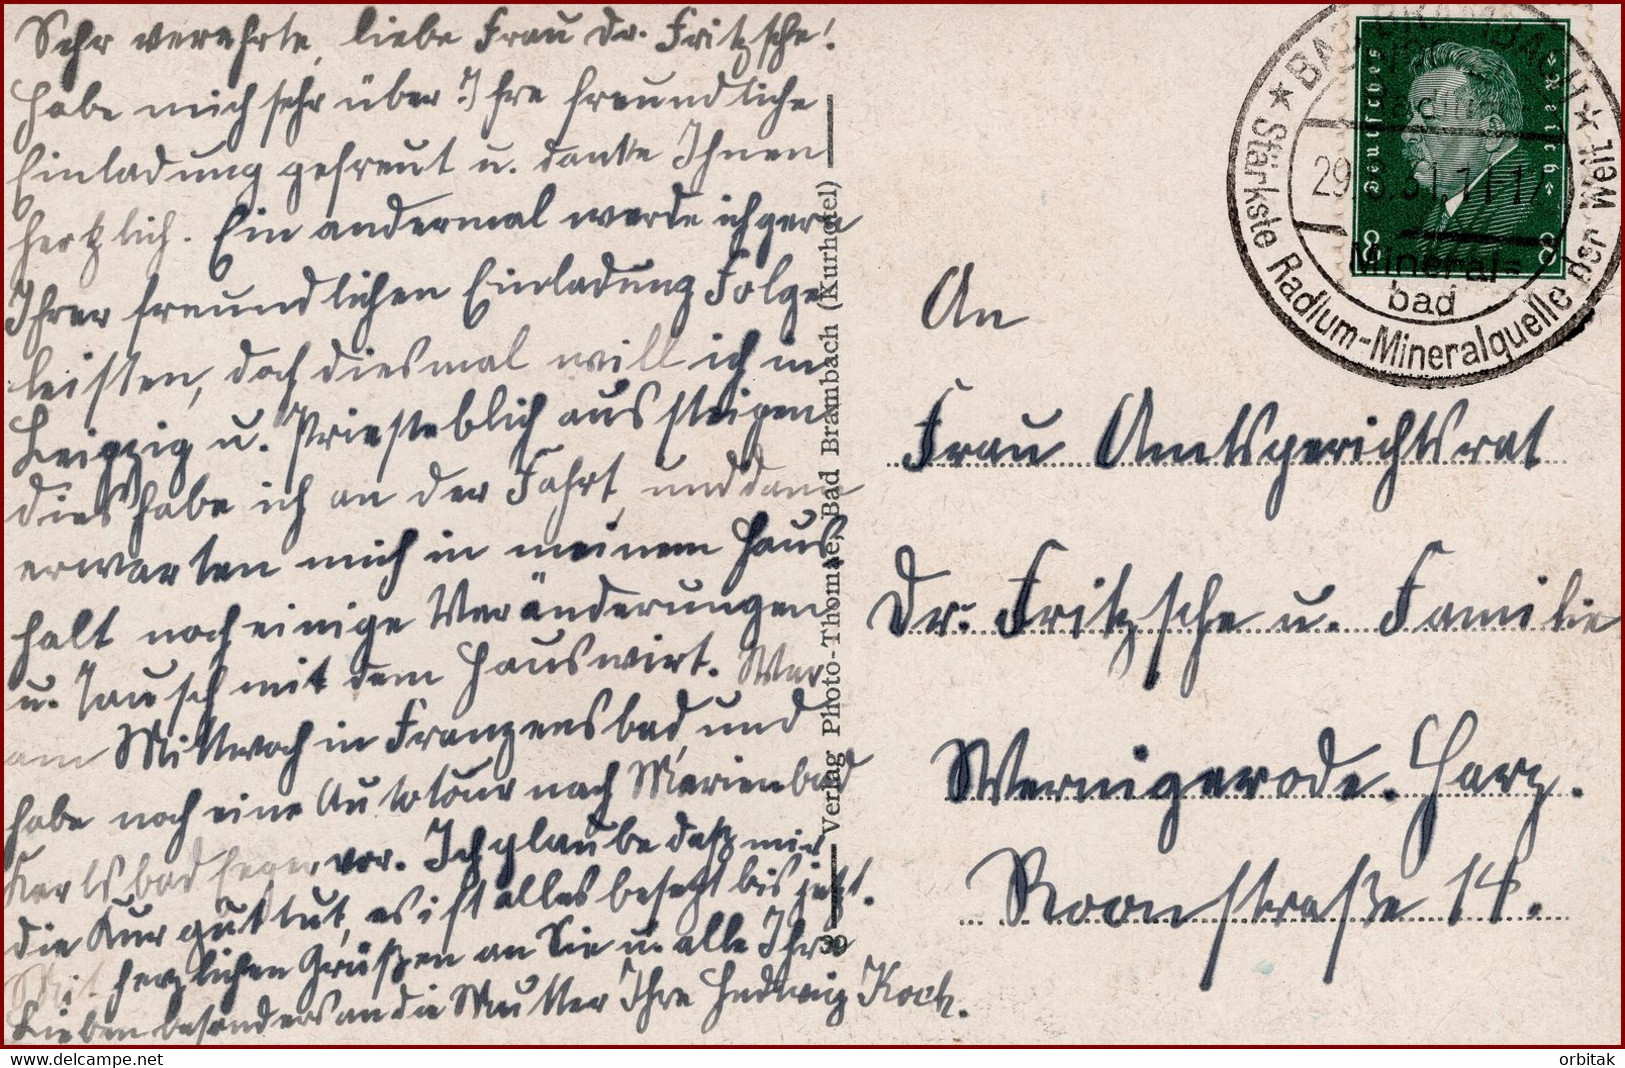 Sehr verehrte, liebe Frau Dr. Fritzsche!
Habe mich sehr über Ihre freundliche
Einladung gefreut u. danke Ihnen
herzlich. Ein andermal werde ich gern
Ihrer freundlichen Einladung Folge
leisten, doch diesmal will ich in
Leipzig u. Priesteblich aussteigen
dies habe ich an der Fahrt, und dann
erwarten mich in meinem Haus
halt noch einige Veränderungen
u. Tausch mit dem Hauswirt. War
am Mittwoch in Franzensbad, und
habe noch eine Autotour nach Marienbad
Karlsbad Eger vor. Ich glaube daß mir
die Kur gut tut, es ist alles besetzt bis jetzt.
Mit herzlichen Grüßen an Sie u. alle Ihre
Lieben besonders an die Mutter Ihre Hedwig Koch.
Verlag Photo-Thomae, Bad Brambach (Kurhotel)
39
BAD BRAMBACH
Radium
29. 31.11-12
Mineral-
bad
Stärkste Radium-Mineralquelle der Welt
Deutsches Reich
8 8
An
Frau Amtsgerichtsrat
Dr. Fritzsche u. Familie
Wernigerode. Harz.
Roonstraße 14.
www.delcampe.net
orbitak